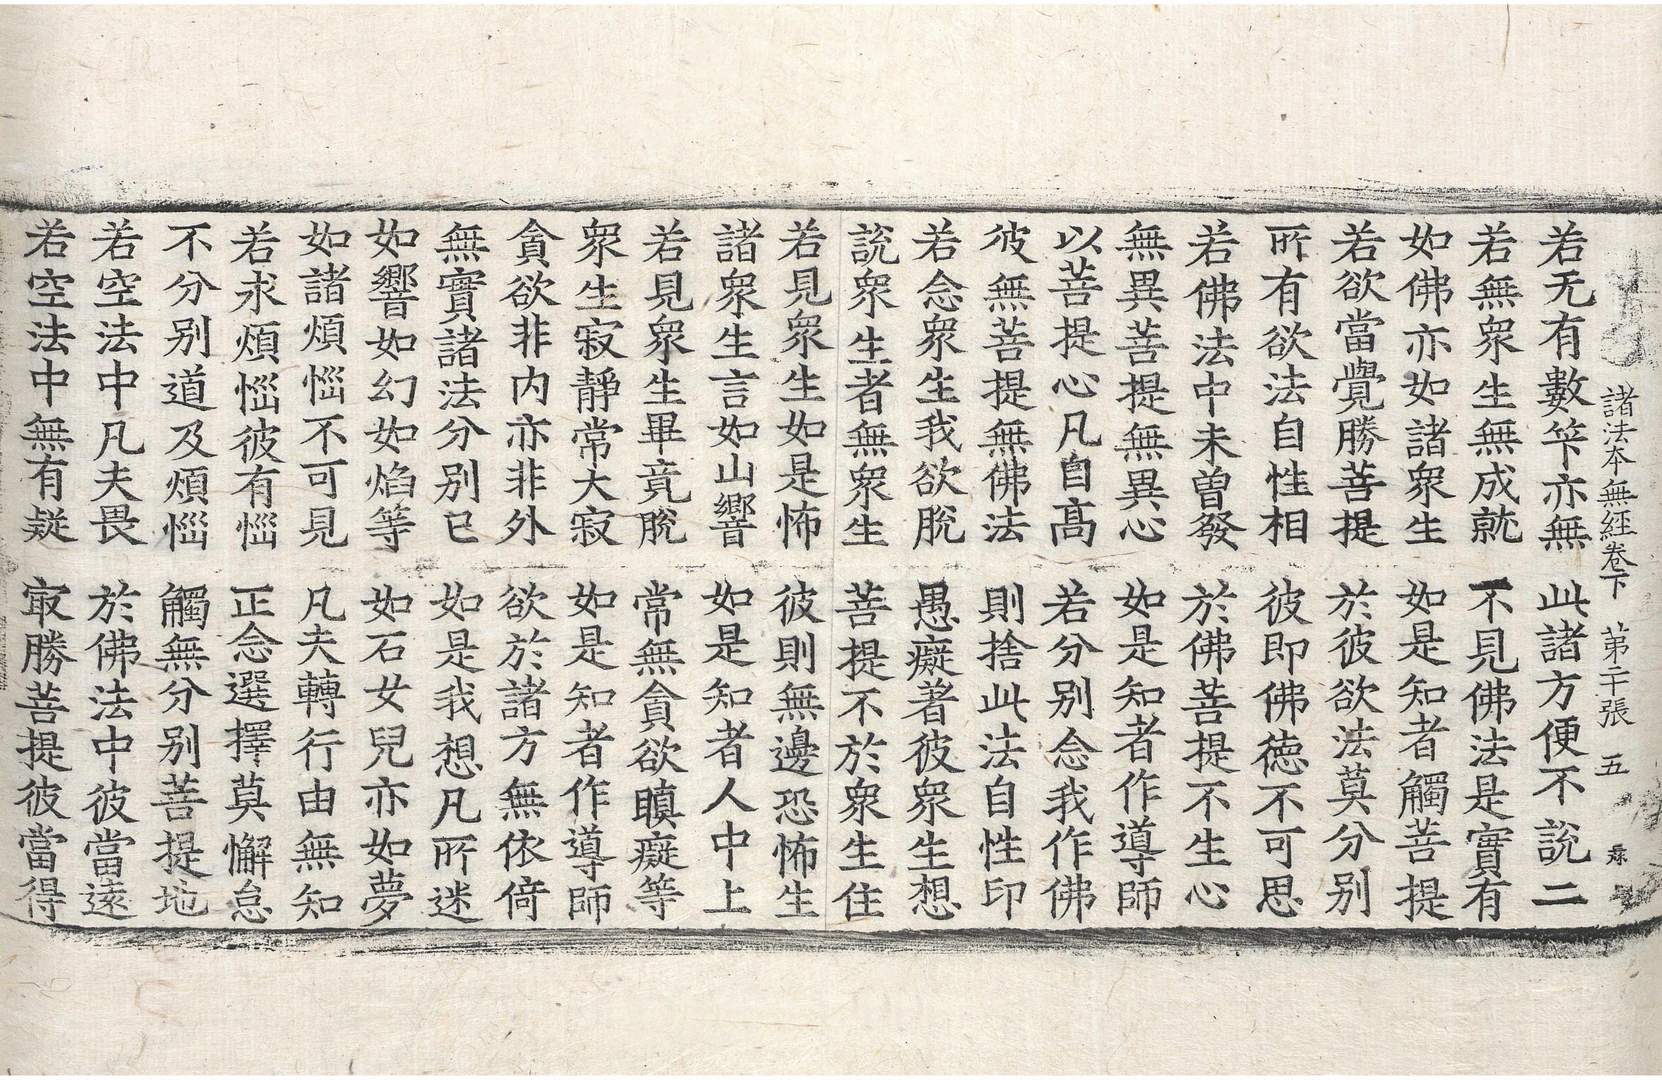 諸法本無經卷下 第二十張 五
若无有數竿亦無 此諸方便不說二
若無衆生無成就 不見佛法是實有
如佛亦如諸衆生 如是知者觸菩提
若欲當覺勝菩提 於彼欲法莫分別
所有欲法自性相 彼即佛德不可思
若佛法中未曾發 於佛菩提不生心
無異菩提無異心 如是知者作導師
以菩提心凡自高 若分別念我作佛
彼無菩提無佛法 則捨此法自性印
若念衆生我欲脫 愚癡著彼衆生想
說衆生者無衆生 菩提不於衆生住
若見衆生如是怖 彼則無邊恐怖生
諸衆生言如山響 如是知者人中上
若見衆生畢竟脫 常無貪欲瞋癡等
衆生寂靜常大寂 如是知者作導師
貪欲非內亦非外 欲於諸方無依倚
無實諸法分別已 如是我想凡所迷
如響如幻如焰等 如石女兒亦如夢
如諸煩惱不可見 凡夫轉行由無知
若求煩惱彼有惱 正念選擇莫懈怠
不分別道及煩惱 觸無分別菩提地
若空法中凡夫畏 於佛法中彼當遠
若空法中無有疑 寂勝菩提彼當得